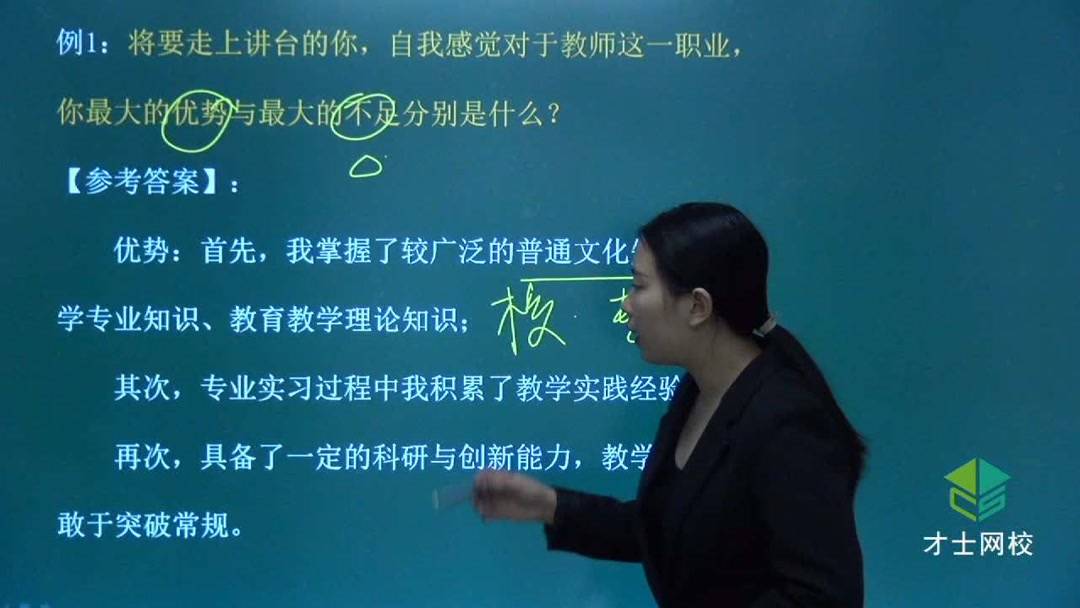 例1：将要走上讲台的你，自我感觉对于教师这一职业，
你最大的优势与最大的不足分别是什么？
【参考答案】：
优势：首先，我掌握了较广泛的普通文化
学专业知识、教育教学理论知识；
其次，专业实习过程中我积累了教学实践经验
再次，具备了一定的科研与创新能力，教学
敢于突破常规。
才士网校